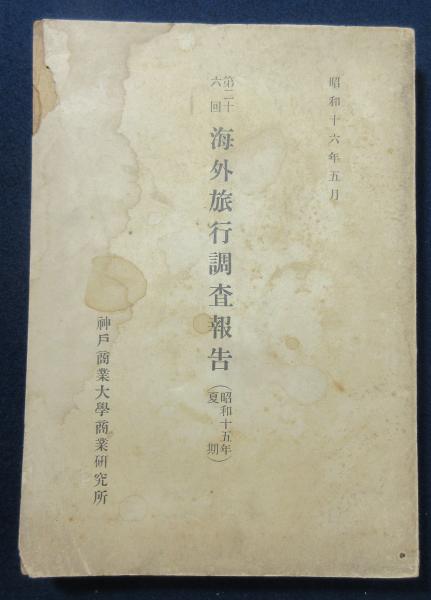 昭和十六年五月
第二十六回 海外旅行調査報告 (昭和十五年夏期)
神戶商業大學商業研究所